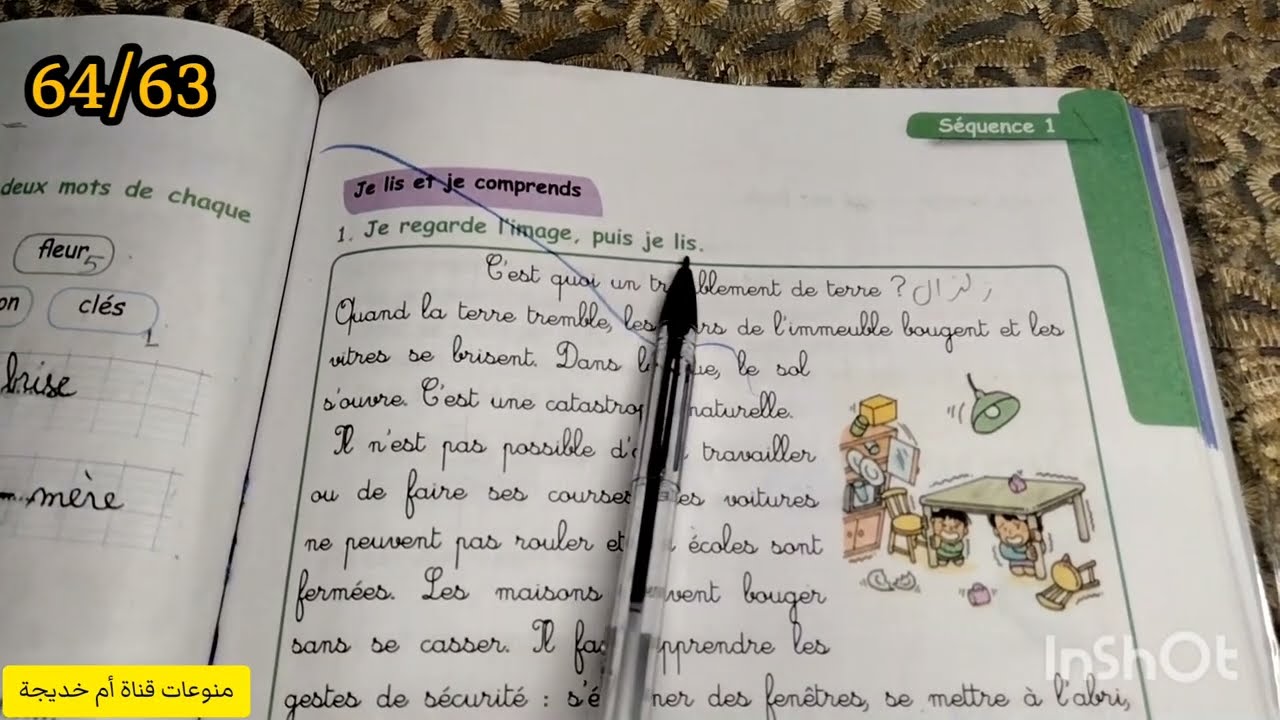 64/63
Séquence 1
deux mots de chaque
fleur 5
on
clés
brise
mère
Je lis et je comprends
1. Je regarde l'image, puis je lis.
C'est quoi un tremblement de terre ? زلزال
Quand la terre tremble, les murs de l'immeuble bougent et les
vitres se brisent. Dans la rue, le sol
s'ouvre. C'est une catastrophe naturelle.
Il n'est pas possible d' travailler
ou de faire ses courses les voitures
ne peuvent pas rouler et écoles sont
fermées. Les maisons peuvent bouger
sans se casser. Il faut apprendre les
gestes de sécurité : s'éloigner des fenêtres, se mettre à l'abri,
منوعات قناة أم خديجة
InShOt